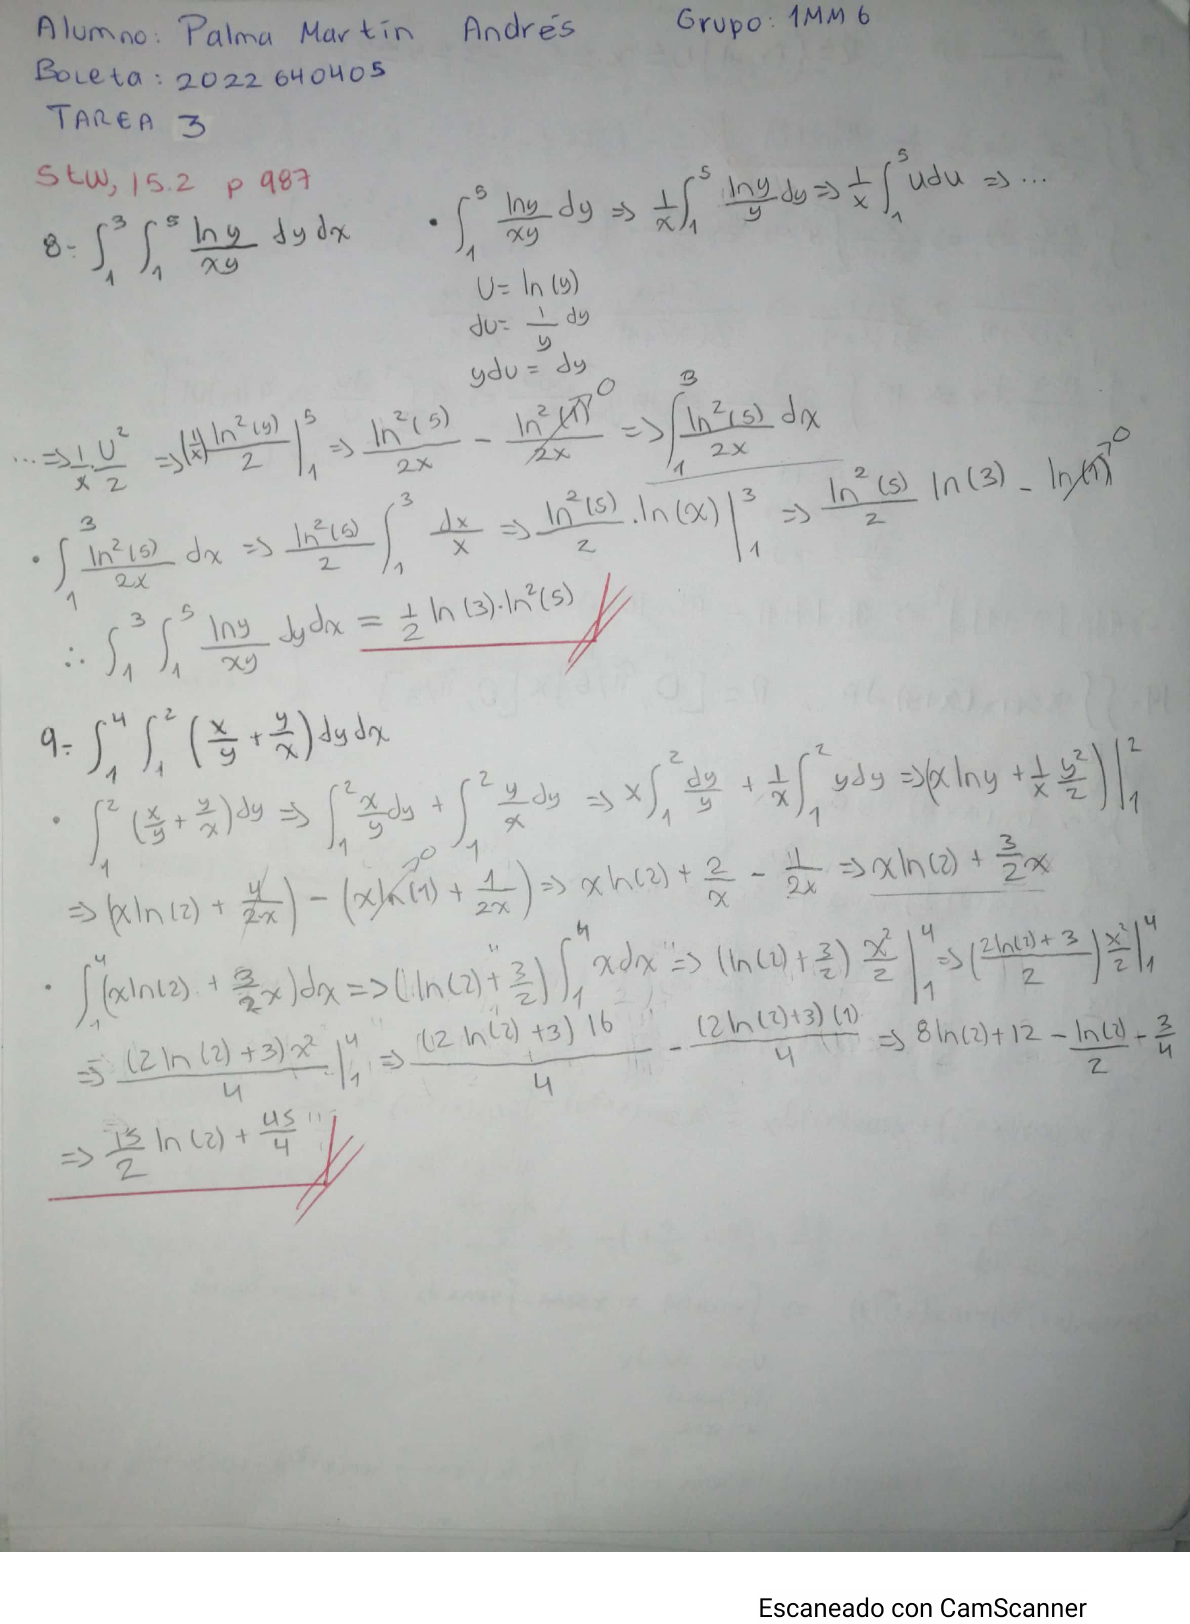 Alumno: Palma Martín Andrés Grupo: 1MM6
Boleta: 2022640405
TAREA 3
Stw, 15.2 p 987
8- ∫₁³ ∫₁⁵ ln y/xy dy dx • ∫₁⁵ ln y/xy dy => 1/x ∫₁⁵ ln y/y dy => 1/x ∫₁⁵ u du => ...
U = ln(y)
du = 1/y dy
y du = dy
... => 1/x · U²/2 => (1/x) ln²(y)/2 |₁⁵ => ln²(5)/2x - ln²(1)/2x →0 => ∫₁³ ln²(5)/2x dx
• ∫₁³ ln²(5)/2x dx => ln²(5)/2 ∫₁³ dx/x => ln²(5)/2 · ln(x) |₁³ => ln²(5)/2 ln(3) - ln(1) →0
∴ ∫₁³ ∫₁⁵ ln y/xy dy dx = 1/2 ln(3)·ln²(5)
9- ∫₁⁴ ∫₁² (x/y + y/x) dy dx
• ∫₁² (x/y + y/x) dy => ∫₁² x/y dy + ∫₁² y/x dy => x ∫₁² dy/y + 1/x ∫₁² y dy => (x ln y + 1/x y²/2) |₁²
=> (x ln(2) + 4/2x) - (x ln(1) →0 + 1/2x) => x ln(2) + 2/x - 1/2x => x ln(2) + 3/2 x
• ∫₁⁴ (x ln(2) + 3/2 x) dx => (ln(2) + 3/2) ∫₁⁴ x dx => (ln(2) + 3/2) x²/2 |₁⁴ => (2 ln(2) + 3/2) x²/2 |₁⁴
=> (2 ln(2) + 3) x²/4 |₁⁴ => ((2 ln(2) + 3) 16/4 - (2 ln(2) + 3)(1)/4 => 8 ln(2) + 12 - ln(2)/2 - 3/4
=> 15/2 ln(2) + 45/4
Escaneado con CamScanner